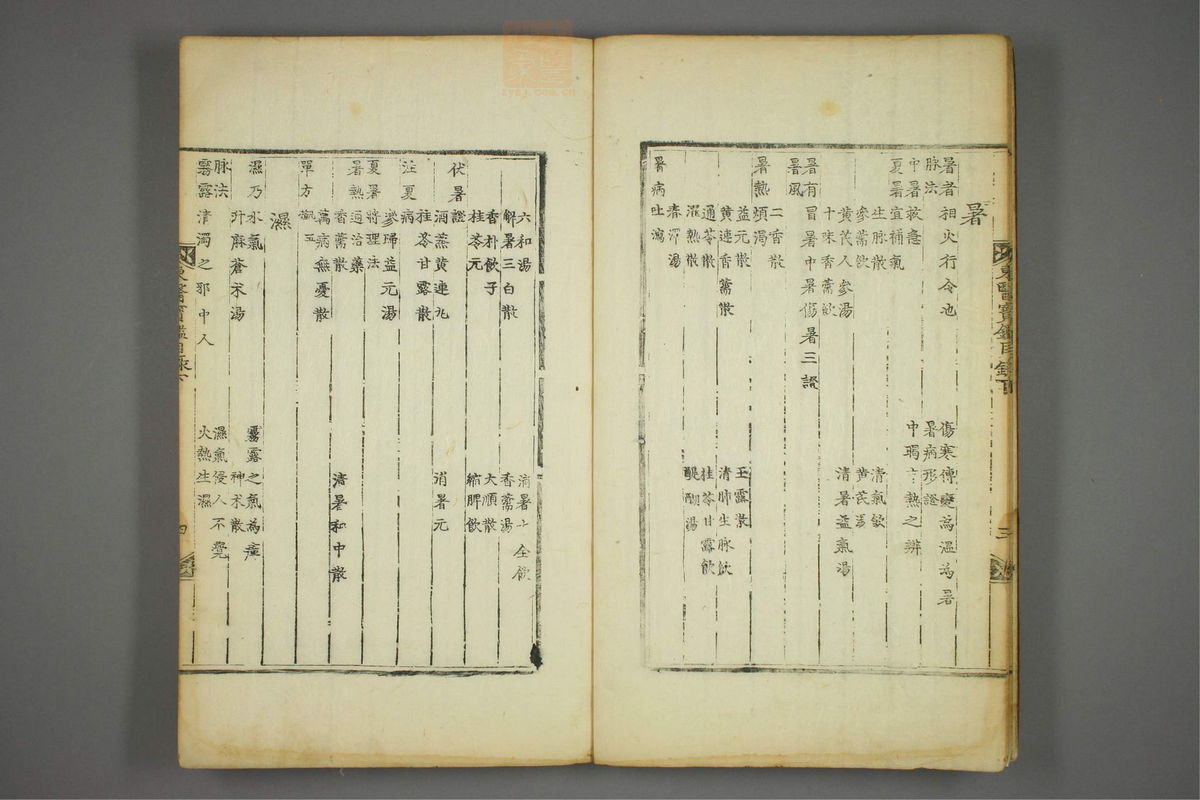 暑
暑者相火行令也 傷寒傳變爲溫爲暑
脉法 暑病形證
中暑救急 中暍中熱之辨
夏暑宜補氣
生脉散 清氣飲
參蓯飲 黃芪湯
黃芪人參湯 清暑益氣湯
十味香薷飲
暑有冒暑中暑傷暑三證
暑風
二香散
暑熱煩渴
益元散 玉露散
黃連香薷散 清肺生脉飲
通苓散 桂苓甘露飲
濯熱散 醍醐湯
春澤湯
暑病吐瀉
東醫寶鑑目錄下 三
六和湯 消暑十全飲
解暑三白散 香薷湯
香朴飲子 大順散
桂苓元 縮脾飲
伏暑證
酒蒸黃連丸 消暑元
桂苓甘露散
注夏病
參歸益元湯
夏暑將理法
暑熱通治藥
香薷散 清暑和中散
萬病無憂散
單方
濕
濕乃水氣 霧露之氣爲瘴
升麻蒼朮湯 神朮散
脉法 濕氣侵人不覺
霧露清濁之邪中人 火熱生濕
東醫寶鑑目錄下 四